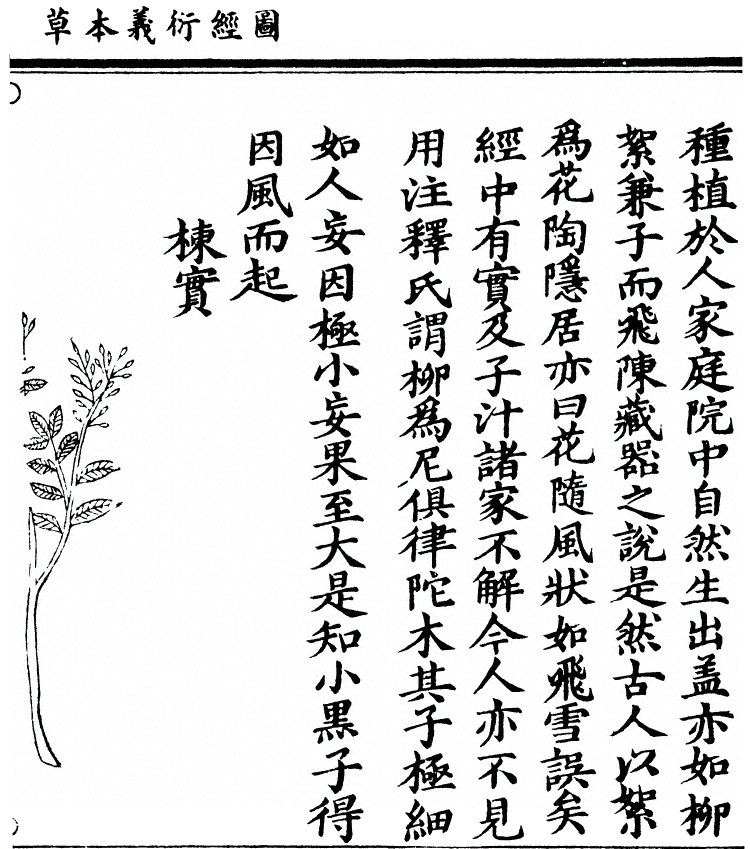 圖經衍義本草
種植於人家庭院中自然生出盖亦如柳
絮兼子而飛陳藏器之說是然古人以絮
為花陶隱居亦曰花隨風狀如飛雪誤矣
經中有實及子汁諸家不解今人亦不見
用注釋氏謂柳為尼俱律陀木其子極細
如人妄因極小妄果至大是知小黑子得
因風而起
楝實